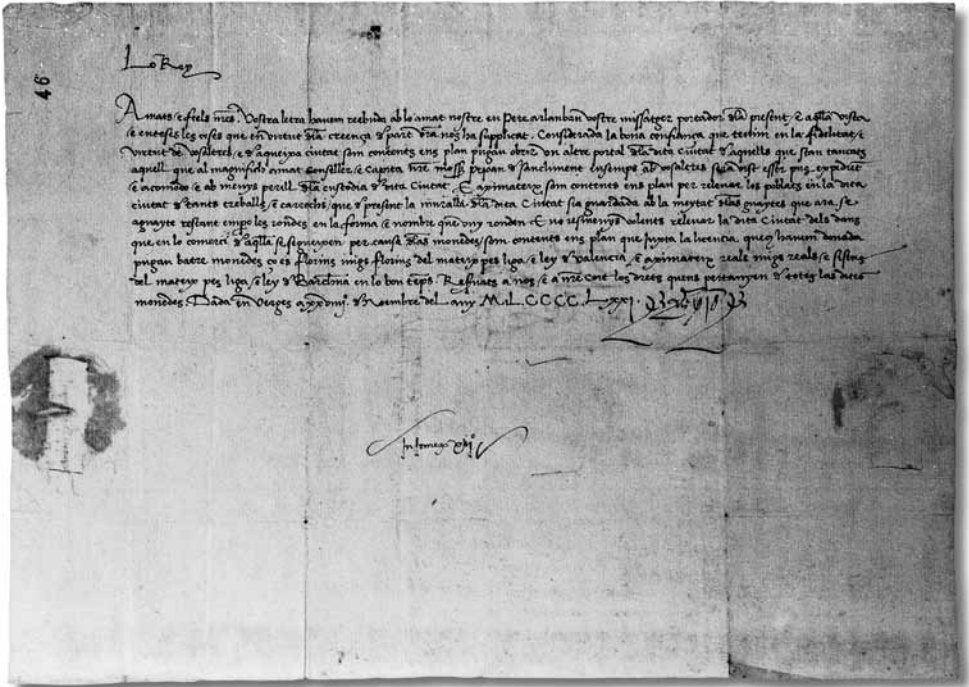 46
Lo Rey
Amats e feels nres. Vostra letra havem reebuda ab lo amat nostre en Pere arlanban vostre missatger portador dla present, e aqlla vista
e enteses les coses que en virtut dla creença d part vra nos ha supplicat. Considerada la bona confiança que tenim en la fidelitat e
virtut de vosaltres, e d aqueixa ciutat som contents ens plau pugau obrir un altre portal dla dita Ciutat d aquells que stan tancats
aquell que al magnifich amat conseller e Capita nre mossen d sanctliment ensemps ab vosaltres sera vist esser pus expedient
e acomodo e ab menys perill dla custodia d dita Ciutat. E aximateix som contents ens plau per relevar los poblats en la dita
ciutat d tants treballs e carrechs que d present la muralla dla dita Ciutat sia guardada ab la meytat dlas guaytes que ara se
aguayte restant empo les rondes en la forma e nombre que vuy ronden. E no resmenys volents relevar la dita Ciutat dels dans
que en lo comerci d aqlla se segueixen per causa dlas monedes som contents ens plau que juxta la licencia queus havem donada
pugau batre monedes ço es florins migs florins del mateix pes liga e ley d Valencia, e aximateix reals migs reals e sisens
del mateix pes liga e ley d Barchna en lo bon temps. Resvats a nos e a nra Cort los drets quens pertanyen d totes las dites
monedes. Dada en Verges a xxviiij d Noembre del any M.l. C C C C. Lxxj.